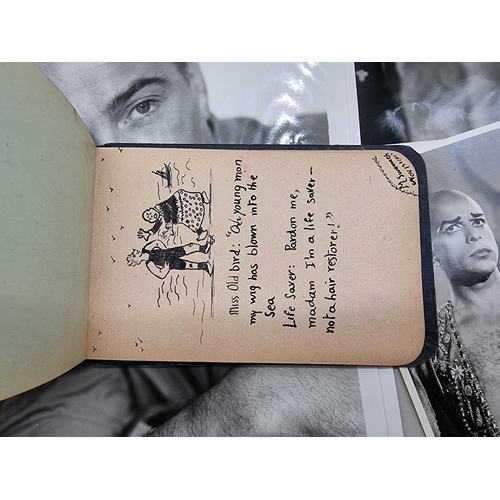 Miss Old bird: "Oi young man
my wig has blown into the
sea
Life Saver: Pardon me,
madam I'm a life saver—
not a hair restorer!"